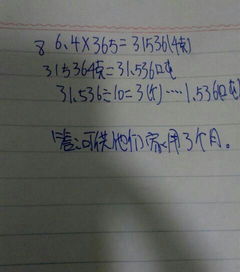 8 6.4×365=31536(千克)
31536千克=31.536吨
31.536÷10=3(个)……1.536(吨)
答:可供他们家用3个月。